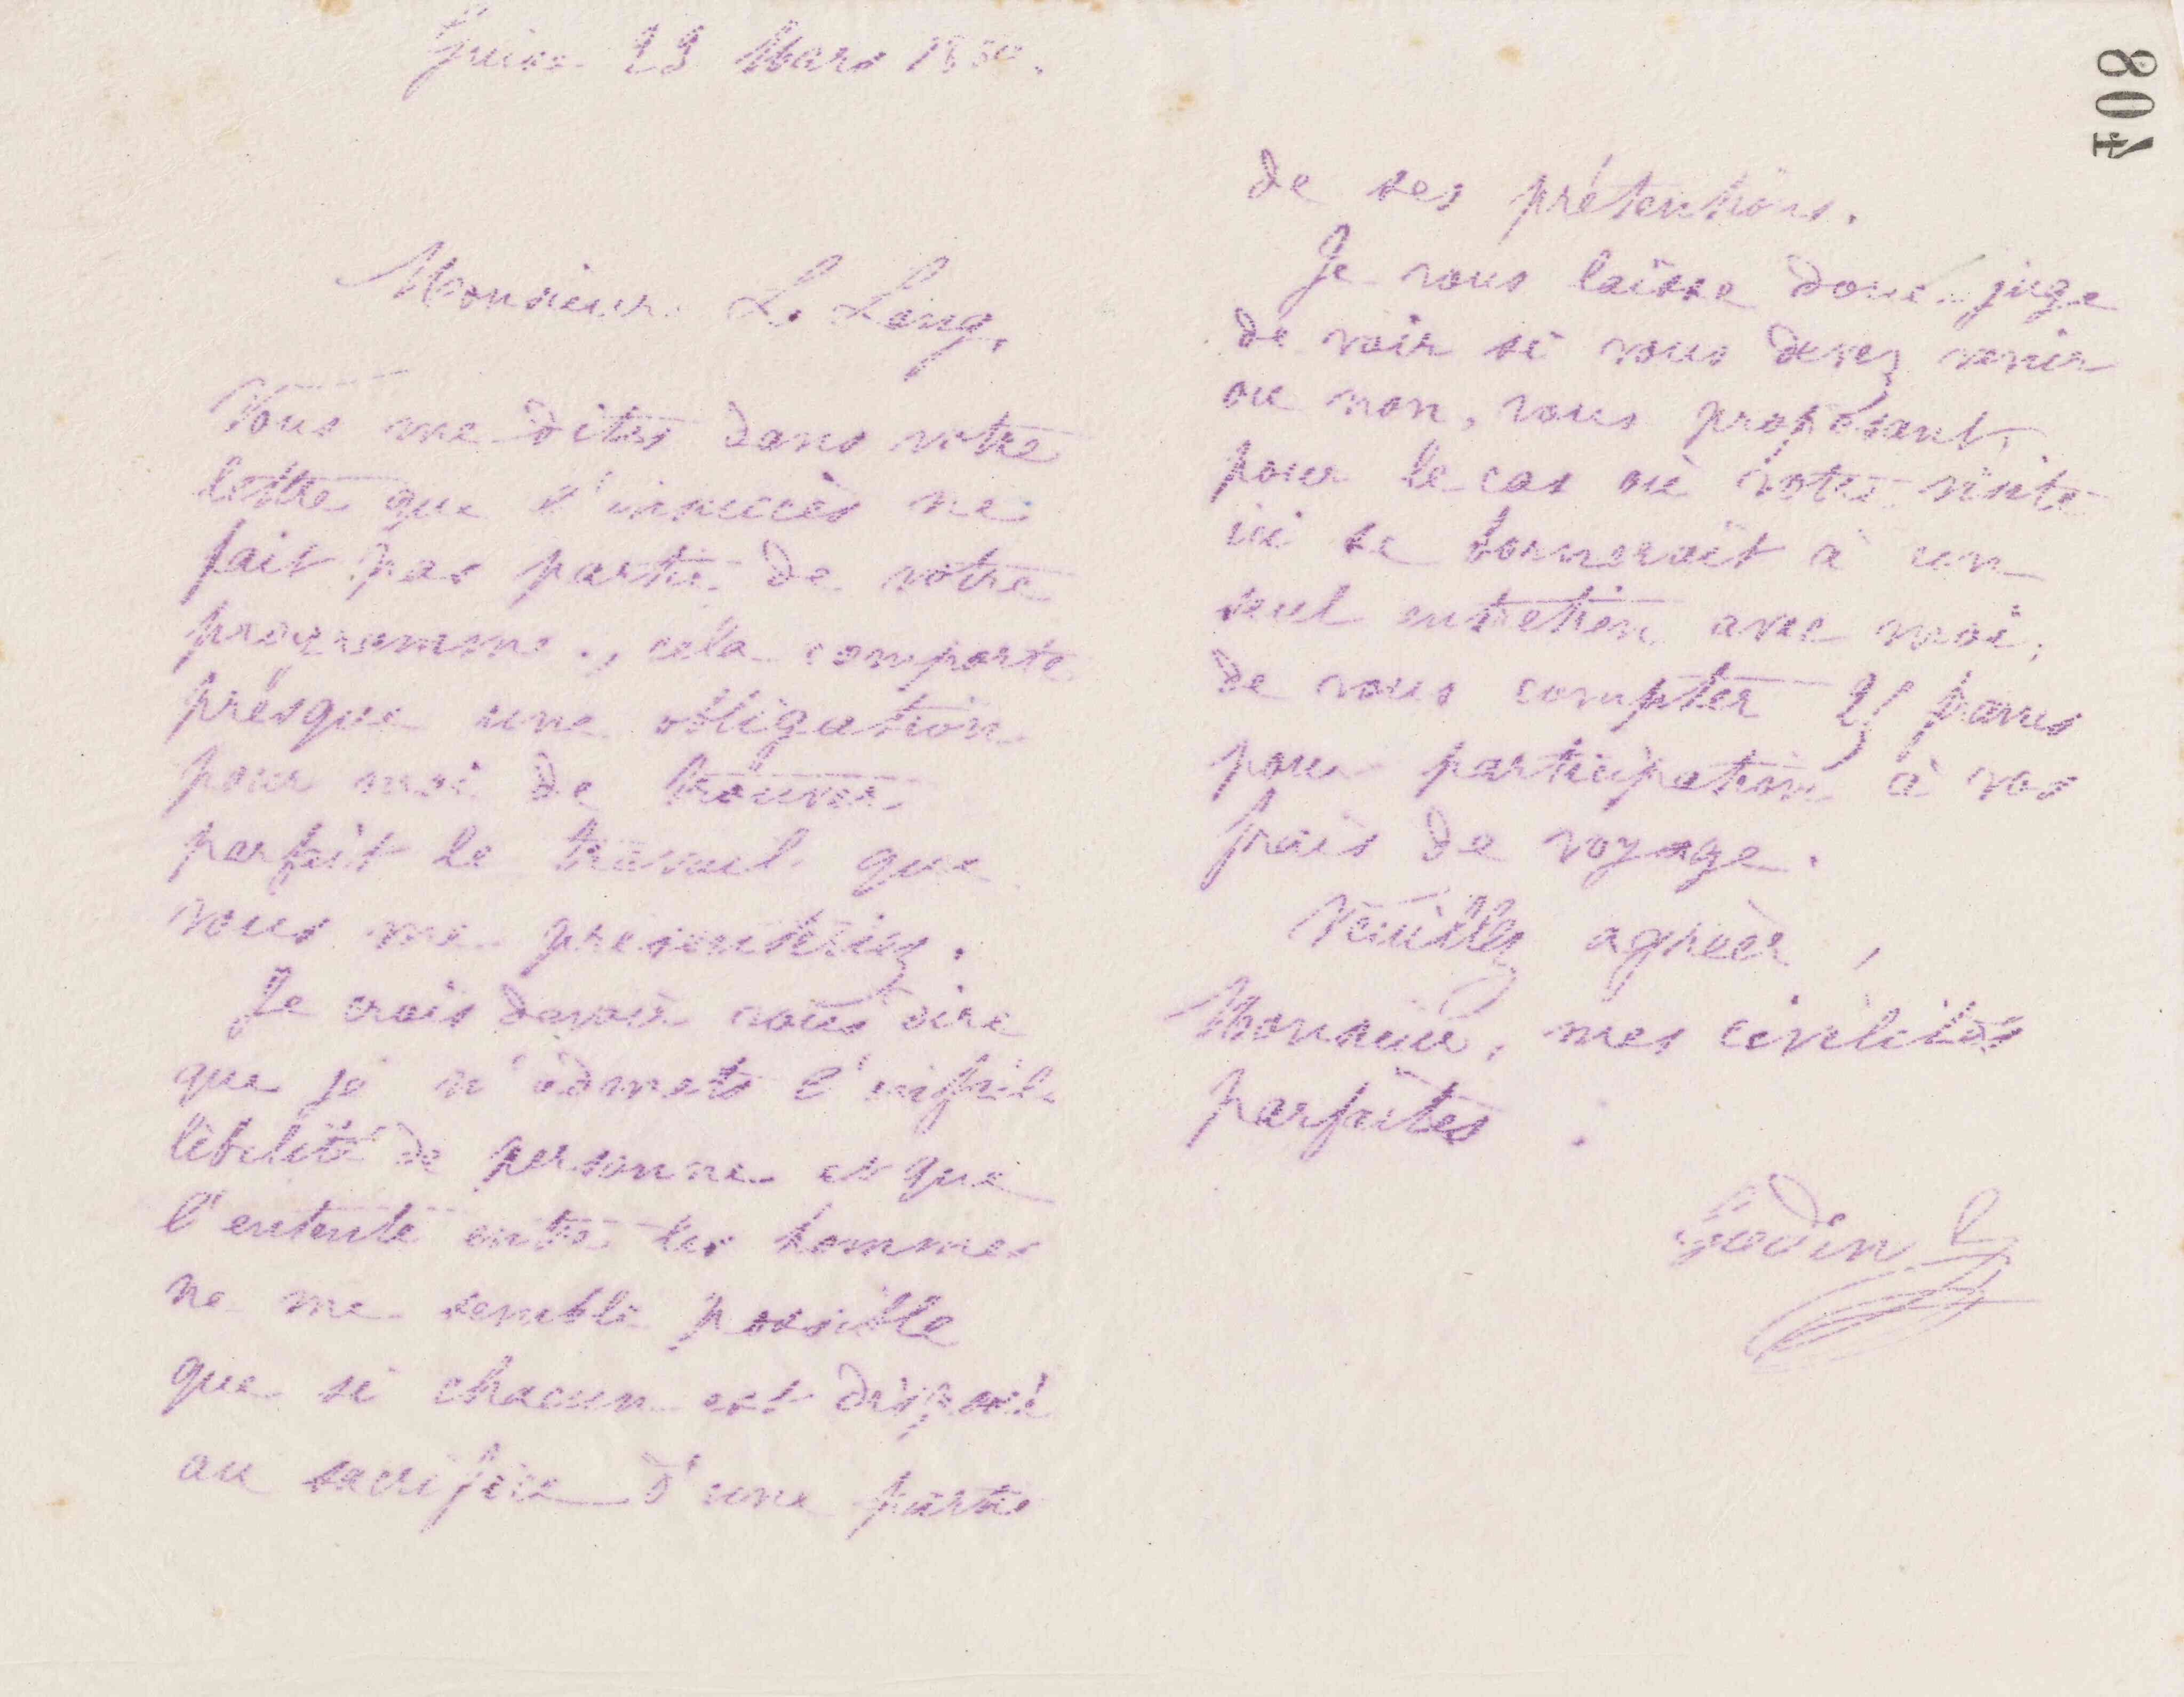 Guise 23 Mars 1880.
Monsieur L. Lang,
Vous me dites dans votre
lettre que l'insuccès ne
fait pas partie de votre
programme, cela comporte
presque une obligation
pour moi de trouver
parfait le travail que
vous me presenteriez.
Je crois devoir vous dire
que je n'admets l'infail-
libilité de personne et que
l'entente entre les hommes
ne me semble possible
que si chacun est disposé
au sacrifice d'une partie
408
de ses prétentions.
Je vous laisse donc juge
de voir si vous devez venir
ou non, vous proposant,
pour le cas où votre visite
ici se bornerait à un
seul entretien avec moi,
de vous compter 25 francs
pour participation à vos
frais de voyage.
Veuillez agréer,
Monsieur, mes civilités
parfaites.
Godin